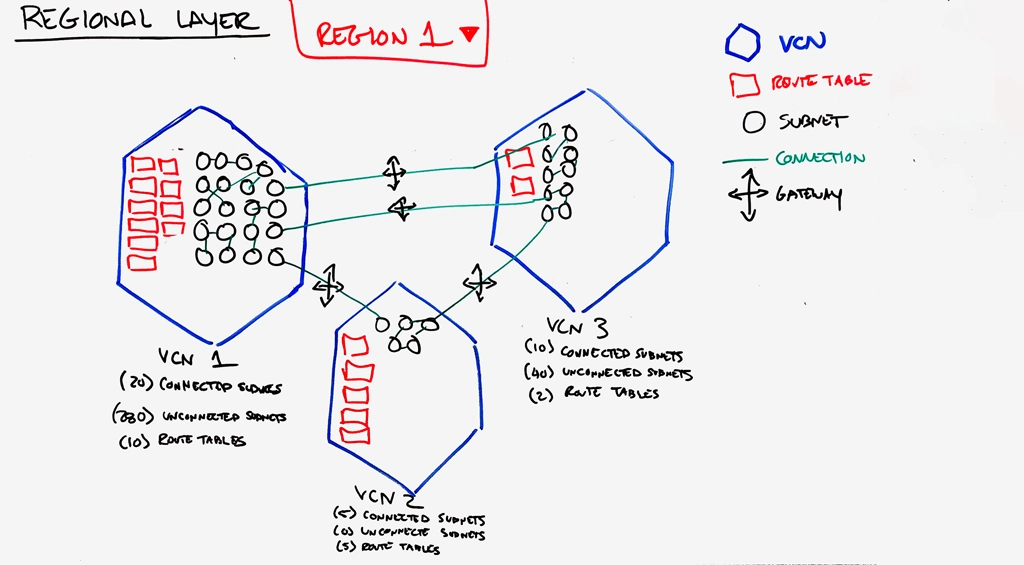 REGIONAL LAYER
REGION 1
VCN
ROUTE TABLE
SUBNET
CONNECTION
GATEWAY
VCN 1
(20) CONNECTED SUBNETS
(280) UNCONNECTED SUBNETS
(10) ROUTE TABLES
VCN 2
(5) CONNECTED SUBNETS
(0) UNCONNECTE SUBNETS
(5) ROUTE TABLES
VCN 3
(10) CONNECTED SUBNETS
(40) UNCONNECTED SUBNETS
(2) ROUTE TABLES